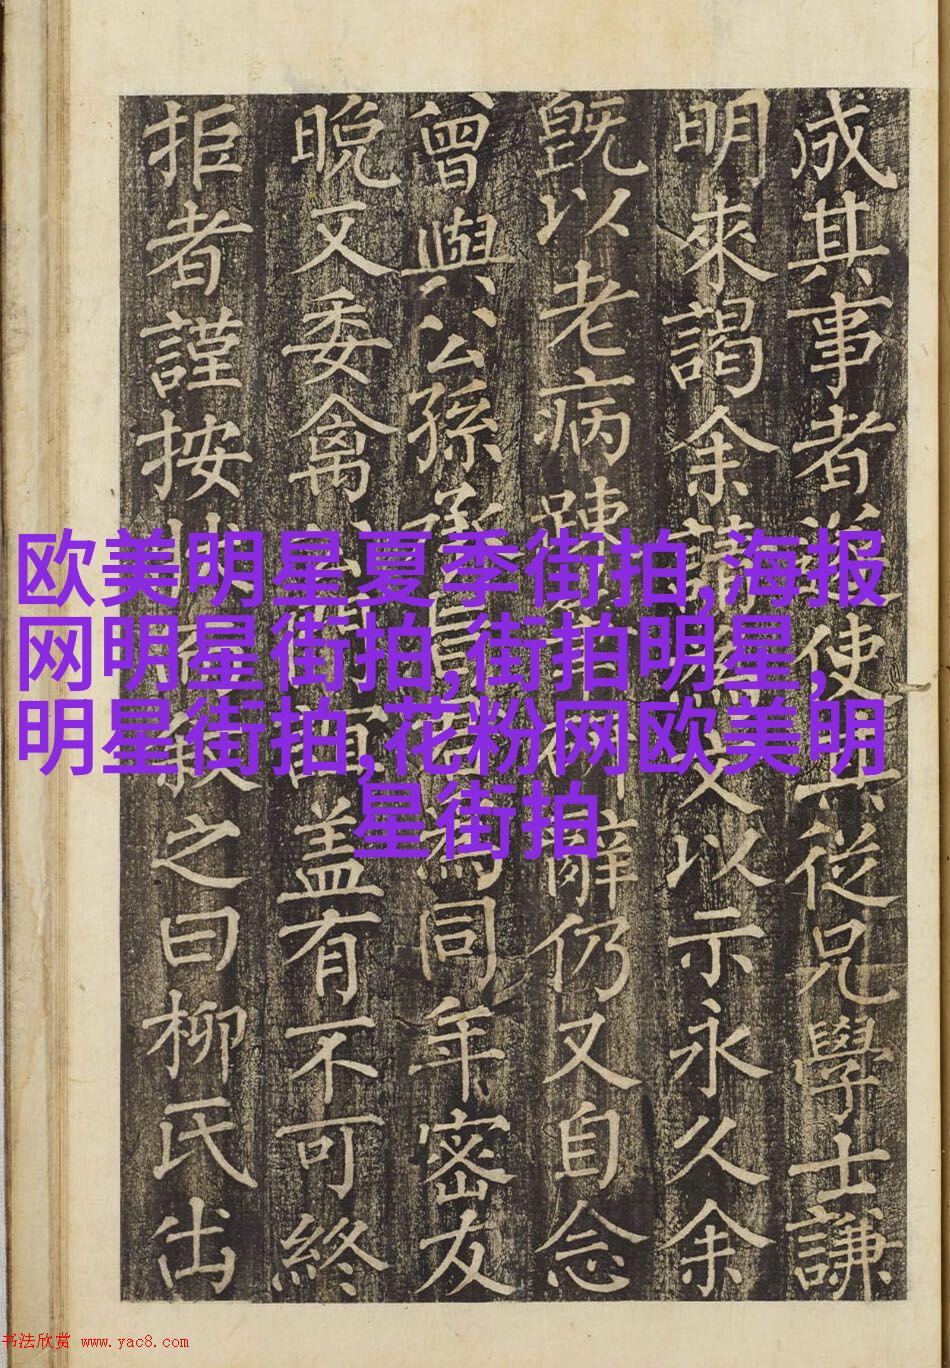 成其事者使從兄學士謙
明來謁余請文以示永久余
既以老病踈辭仍又自念
曾與公孫為同年密友
晚又委禽盖有不可終
拒者謹按之曰柳氏出
欧美明星夏季街拍,海报
网明星街拍,街拍明星,
明星街拍,花粉网欧美明
星街拍
书法欣赏 www.yac8.com